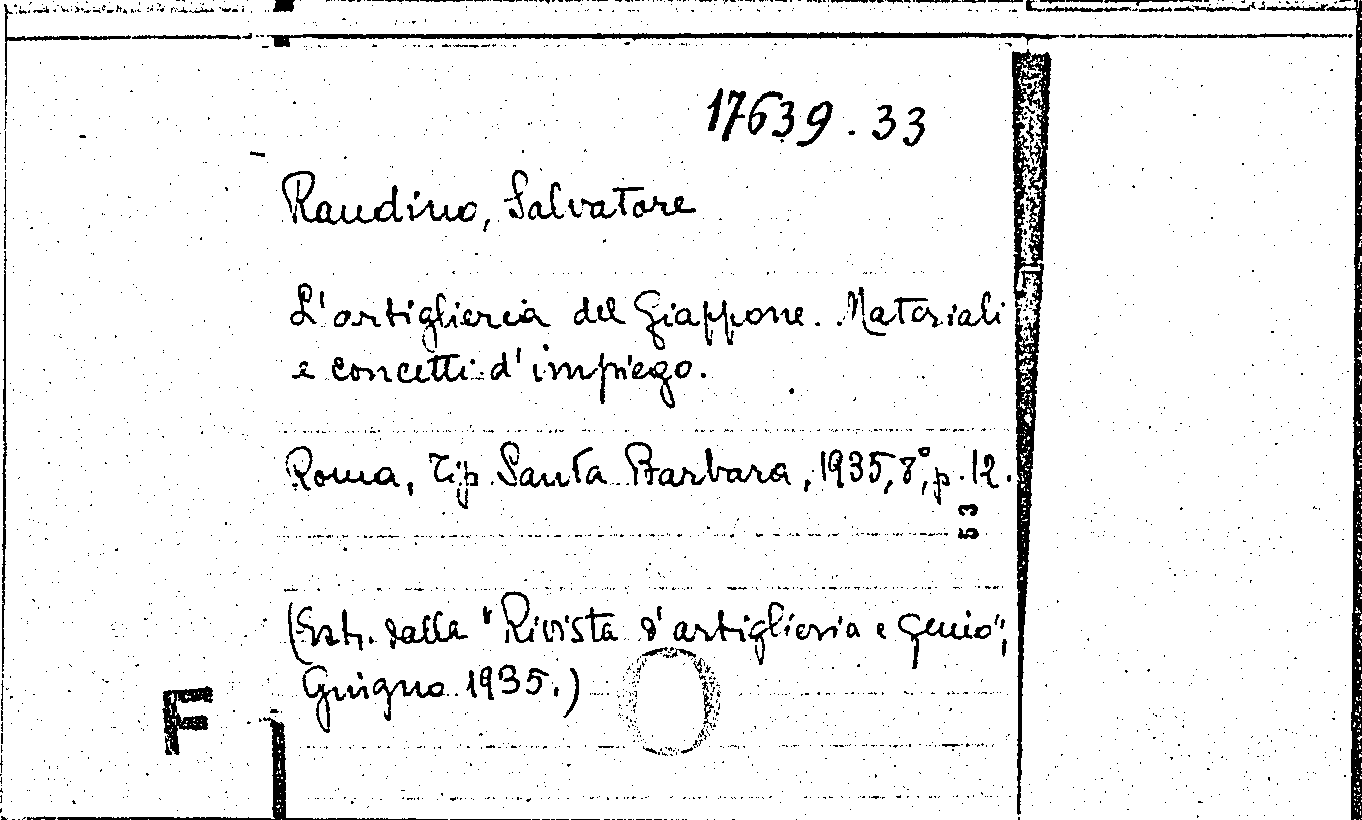 17639.33
Raudino, Salvatore
L'artiglieria del Giappone. Materiali
e concetti d'impiego.
Roma, Tip. Santa Barbara, 1935, 8°, p. 12.
53
(Estr. dalla "Rivista d'artiglieria e genio",
Giugno 1935.)
F